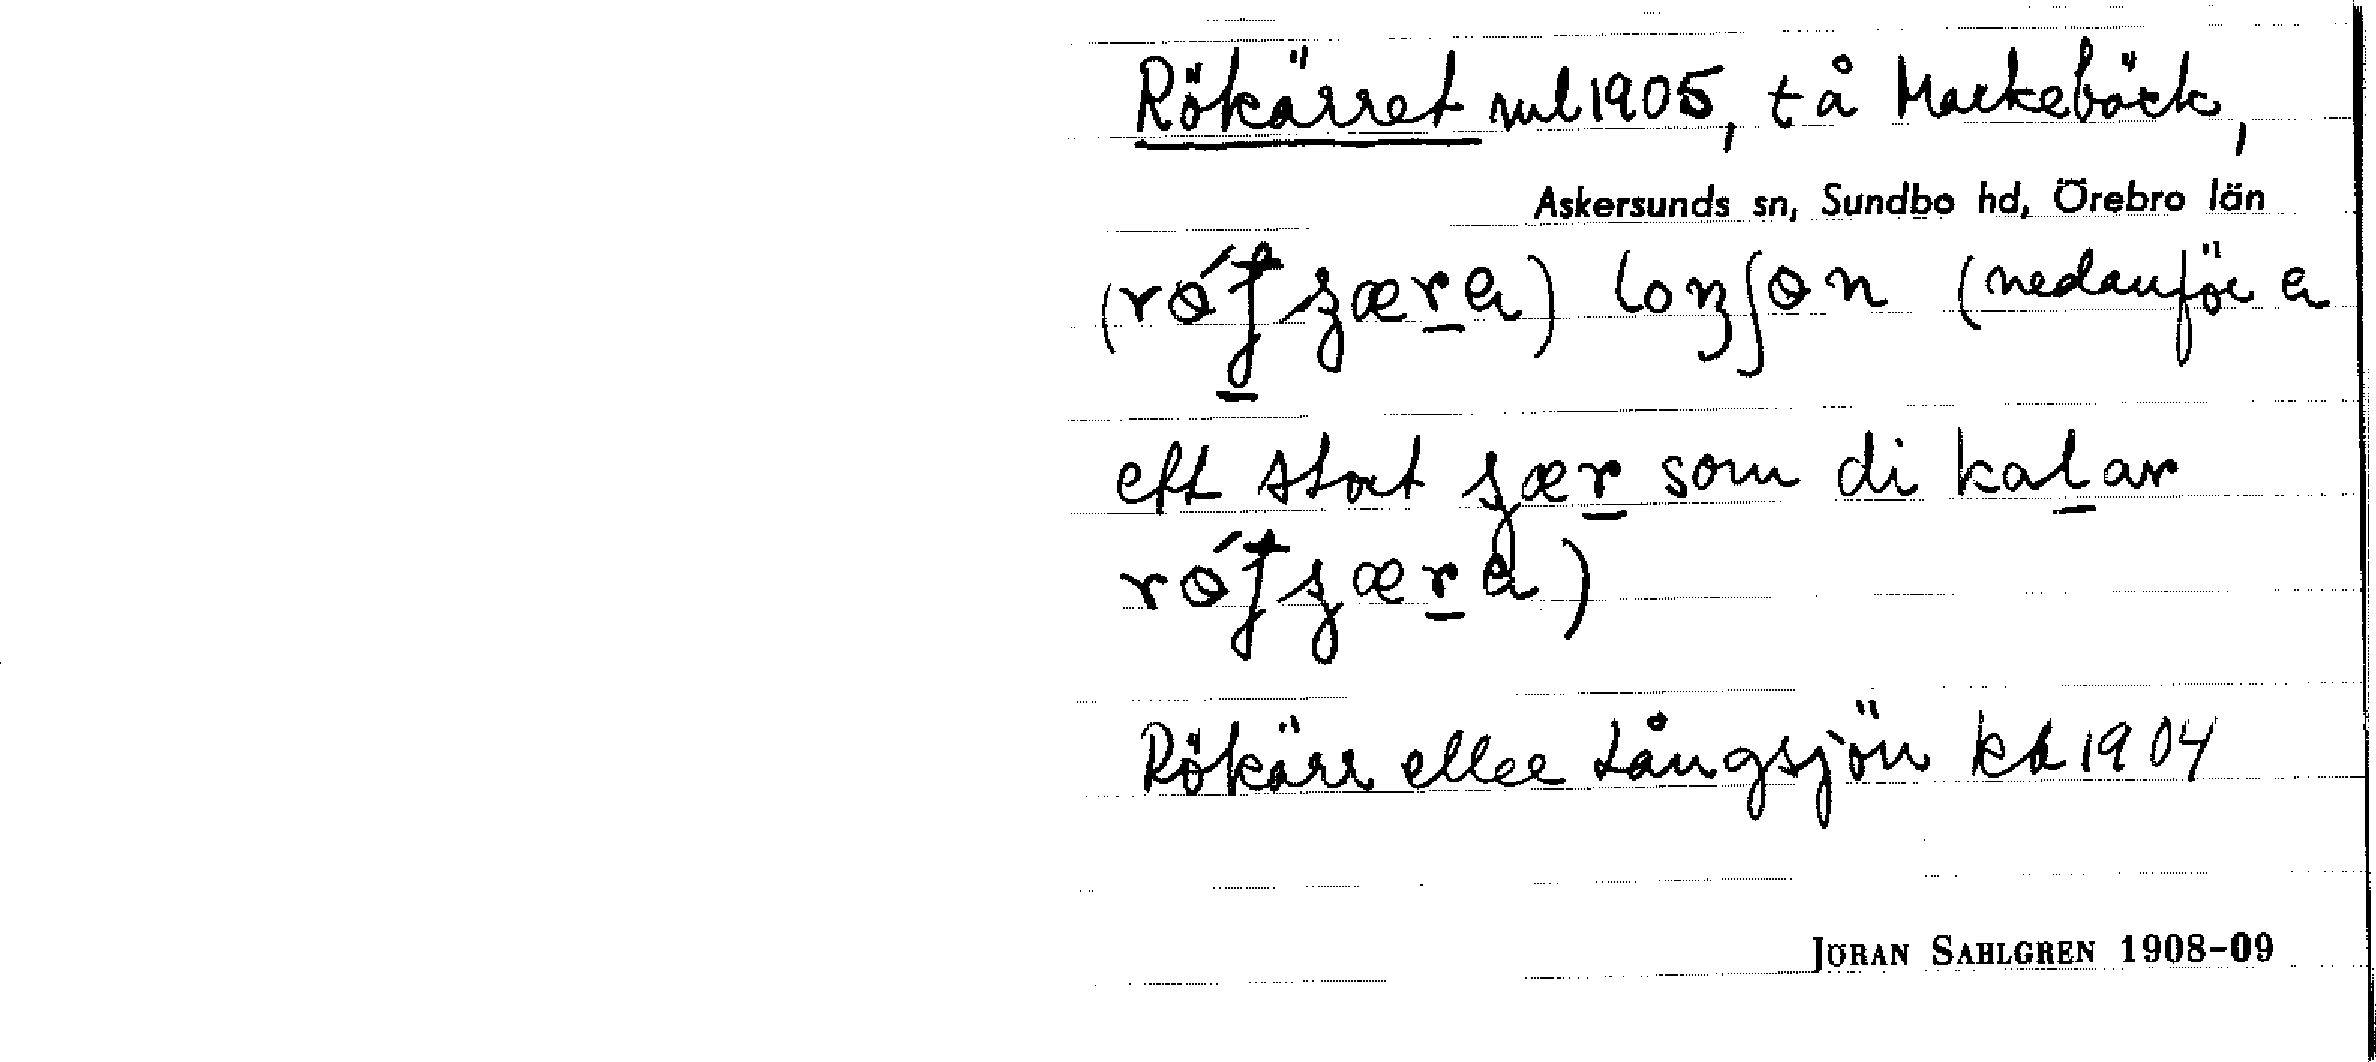 Rökärret ml 1905, t å Markebäck,
Askersunds sn, Sundbo hd, Örebro län
lonʃøn (nedanför
eft stort som di kalar
Rökärr eller Långsjön kk 1904
JÖRAN SAHLGREN 1908-09